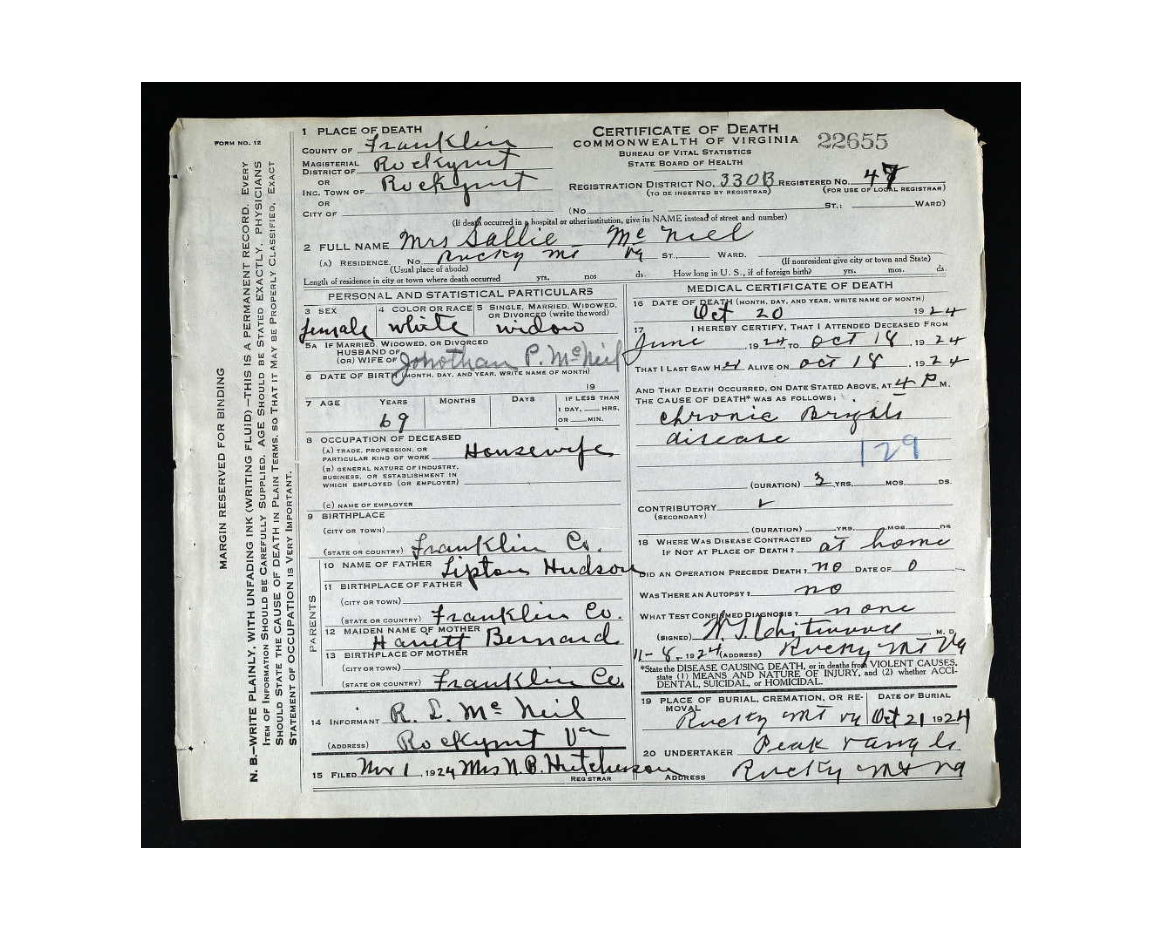 FORM NO. 12
MARGIN RESERVED FOR BINDING
N. B.—WRITE PLAINLY, WITH UNFADING INK (WRITING FLUID)—THIS IS A PERMANENT RECORD. EVERY
ITEM OF INFORMATION SHOULD BE CAREFULLY SUPPLIED. AGE SHOULD BE STATED EXACTLY. PHYSICIANS
SHOULD STATE THE CAUSE OF DEATH IN PLAIN TERMS, SO THAT IT MAY BE PROPERLY CLASSIFIED. EXACT
STATEMENT OF OCCUPATION IS VERY IMPORTANT.
1 PLACE OF DEATH
COUNTY OF Franklin
MAGISTERIAL DISTRICT OF Rockymt
OR
INC. TOWN OF Rockymt
OR
CITY OF
CERTIFICATE OF DEATH
COMMONWEALTH OF VIRGINIA
BUREAU OF VITAL STATISTICS
STATE BOARD OF HEALTH
22655
REGISTRATION DISTRICT NO. 330B REGISTERED NO. 47
(TO BE INSERTED BY REGISTRAR) (FOR USE OF LOCAL REGISTRAR)
(No. ST.; WARD)
(If death occurred in a hospital or other institution, give its NAME instead of street and number)
2 FULL NAME Mrs Sallie McNiel
(A) RESIDENCE. No. Rocky Mt Va ST. WARD.
(Usual place of abode) (If nonresident give city or town and State)
Length of residence in city or town where death occurred yrs. mos. ds. How long in U. S., if of foreign birth? yrs. mos. ds.
PERSONAL AND STATISTICAL PARTICULARS
3 SEX 4 COLOR OR RACE 5 SINGLE, MARRIED, WIDOWED, OR DIVORCED (write the word)
female white widow
5A IF MARRIED, WIDOWED, OR DIVORCED
HUSBAND OF
(OR) WIFE OF Jonothan P. McNeil
6 DATE OF BIRTH (MONTH, DAY, AND YEAR, WRITE NAME OF MONTH)
19
7 AGE YEARS MONTHS DAYS IF LESS THAN
1 DAY, HRS.
OR MIN.
69
8 OCCUPATION OF DECEASED
(A) TRADE, PROFESSION, OR
PARTICULAR KIND OF WORK Housewife
(B) GENERAL NATURE OF INDUSTRY,
BUSINESS, OR ESTABLISHMENT IN
WHICH EMPLOYED (OR EMPLOYER)
(C) NAME OF EMPLOYER
9 BIRTHPLACE
(CITY OR TOWN)
(STATE OR COUNTRY) Franklin Co.
PARENTS
10 NAME OF FATHER Lipton Hudson
11 BIRTHPLACE OF FATHER
(CITY OR TOWN)
(STATE OR COUNTRY) Franklin Co.
12 MAIDEN NAME OF MOTHER
Harrett Bernard
13 BIRTHPLACE OF MOTHER
(CITY OR TOWN)
(STATE OR COUNTRY) Franklin Co.
14 INFORMANT R. L. McNeil
(ADDRESS) Rockymt Va
15 FILED Nov 1, 1924 Mrs N. B. Hutcherson
REGISTRAR
MEDICAL CERTIFICATE OF DEATH
16 DATE OF DEATH (MONTH, DAY, AND YEAR, WRITE NAME OF MONTH)
Oct 20 1924
17 I HEREBY CERTIFY, THAT I ATTENDED DECEASED FROM
June, 1924 TO Oct 18, 1924
THAT I LAST SAW Her ALIVE ON Oct 18, 1924
AND THAT DEATH OCCURRED, ON DATE STATED ABOVE, AT 4 P M.
THE CAUSE OF DEATH* WAS AS FOLLOWS:
Chronic Brights
disease
129
(DURATION) 3 YRS. MOS. DS.
CONTRIBUTORY
(SECONDARY)
(DURATION) YRS. MOS. DS
18 WHERE WAS DISEASE CONTRACTED
IF NOT AT PLACE OF DEATH? at home
DID AN OPERATION PRECEDE DEATH? no DATE OF 0
WAS THERE AN AUTOPSY? no
WHAT TEST CONFIRMED DIAGNOSIS? none
(SIGNED) W. T. Chitwood M. D.
11-8, 1924 (ADDRESS) Rocky Mt Va
*State the DISEASE CAUSING DEATH, or in deaths from VIOLENT CAUSES,
state (1) MEANS AND NATURE OF INJURY, and (2) whether ACCI-
DENTAL, SUICIDAL, or HOMICIDAL.
19 PLACE OF BURIAL, CREMATION, OR RE- DATE OF BURIAL
MOVAL
Rocky Mt Va Oct 21 1924
20 UNDERTAKER Peak
ADDRESS Rocky Mt Va